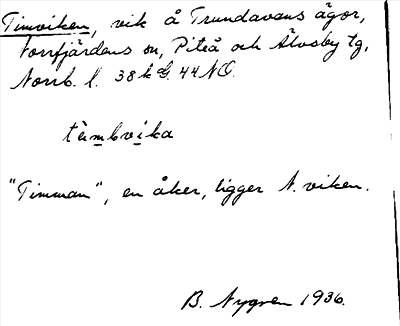 Timviken, vik å Trundavans ägor,
Norrfjärdens sn, Piteå och Älvsby tg,
Norrb. l. 38 k d. 44 NO.
tèmbvika
"Timman", en åker, ligger N. viken.
B. Nygren 1936.